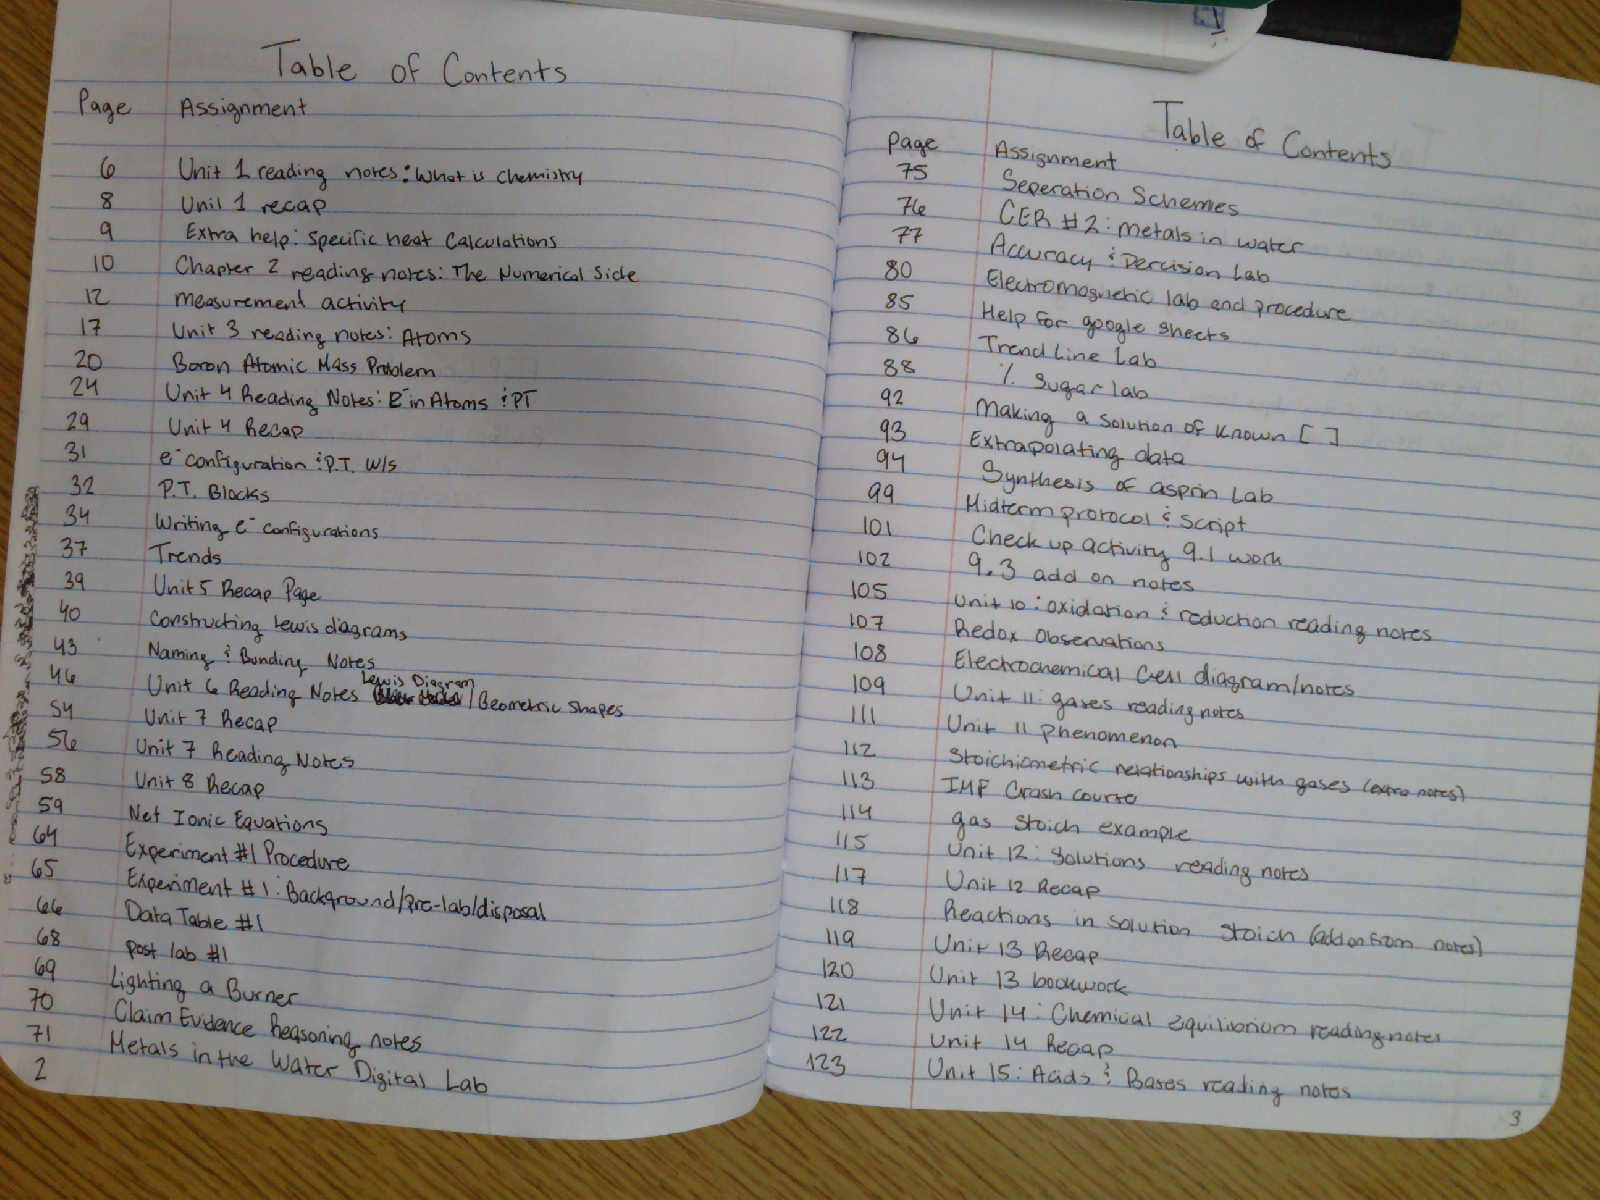 Table of Contents
Page Assignment
6 Unit 1 reading notes: What is Chemistry
8 Unit 1 recap
9 Extra help: Specific heat Calculations
10 Chapter 2 reading notes: The Numerical Side
12 measurement activity
17 Unit 3 reading notes: Atoms
20 Boron Atomic Mass Problem
24 Unit 4 Reading Notes: E⁻ in Atoms & PT
29 Unit 4 Recap
31 e⁻ configuration & P.T. W/s
32 P.T. Blocks
34 Writing e⁻ configurations
37 Trends
39 Unit 5 Recap Page
40 Constructing Lewis diagrams
43 Naming & Bonding Notes
46 Unit 6 Reading Notes Lewis Diagram / Geometric Shapes
54 Unit 7 Recap
56 Unit 7 Reading Notes
58 Unit 8 Recap
59 Net Ionic Equations
64 Experiment #1 Procedure
65 Experiment #1: Background/Pre-lab/disposal
66 Data Table #1
68 post lab #1
69 Lighting a Burner
70 Claim Evidence Reasoning notes
71 Metals in the Water Digital Lab
2
Table of Contents
Page Assignment
75 Seperation Schemes
76 CER #2: metals in water
77 Accuracy & Percision Lab
80 Electromagnetic lab and procedure
85 Help for google sheets
86 Trend Line Lab
88 % Sugar lab
92 Making a solution of known [ ]
93 Extrapolating data
94 Synthesis of asprin Lab
99 Midterm protocol & Script
101 Check up activity 9.1 work
102 9.3 add on notes
105 Unit 10: oxidation & reduction reading notes
107 Redox Observations
108 Electrochemical Cell diagram/notes
109 Unit 11: gases reading notes
111 Unit 11 phenomenon
112 Stoichiometric relationships with gases (extra notes)
113 IMF Crash course
114 gas stoich example
115 Unit 12: Solutions reading notes
117 Unit 12 Recap
118 Reactions in solution Stoich (add on from notes)
119 Unit 13 Recap
120 Unit 13 bookwork
121 Unit 14: Chemical equilibrium reading notes
122 Unit 14 Recap
123 Unit 15: Acids & Bases reading notes
3